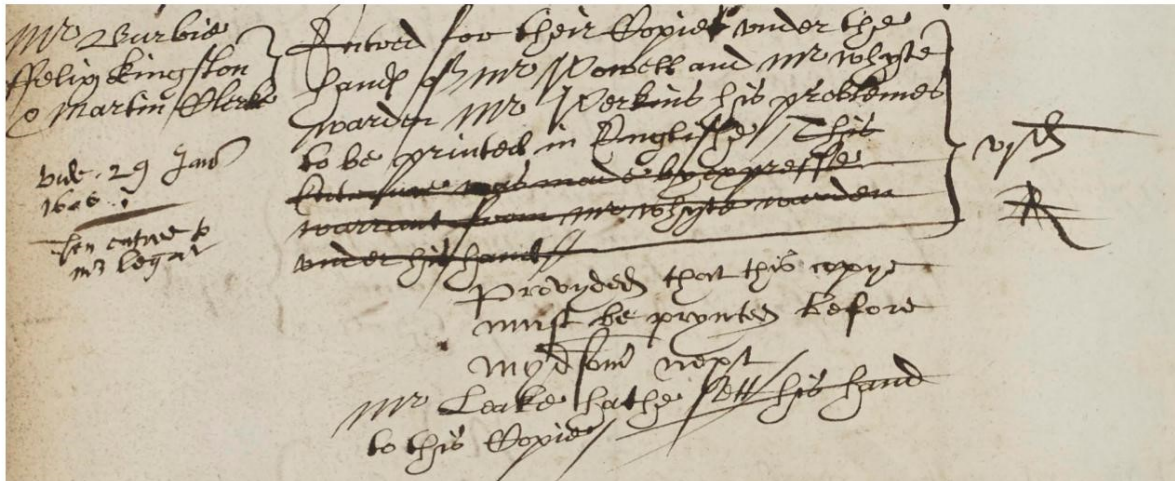 Mr Burbie
ffelix Kingston
& Martin Clerke
vide 29 Junij
1606
then entred to
mr legat
Entred for their Copie vnder the
handes of Mr Powell and mr whyte
warden Mr Perkins his problemes
to be printed in Englisshe / This
Entrance was made by expresse
warrant from mr whyte warden
vnder his hand //
vjd
R
Provyded that this copye
must be prynted before
mydsomer next
Mr Leake hathe sett his hand
to this Copie /